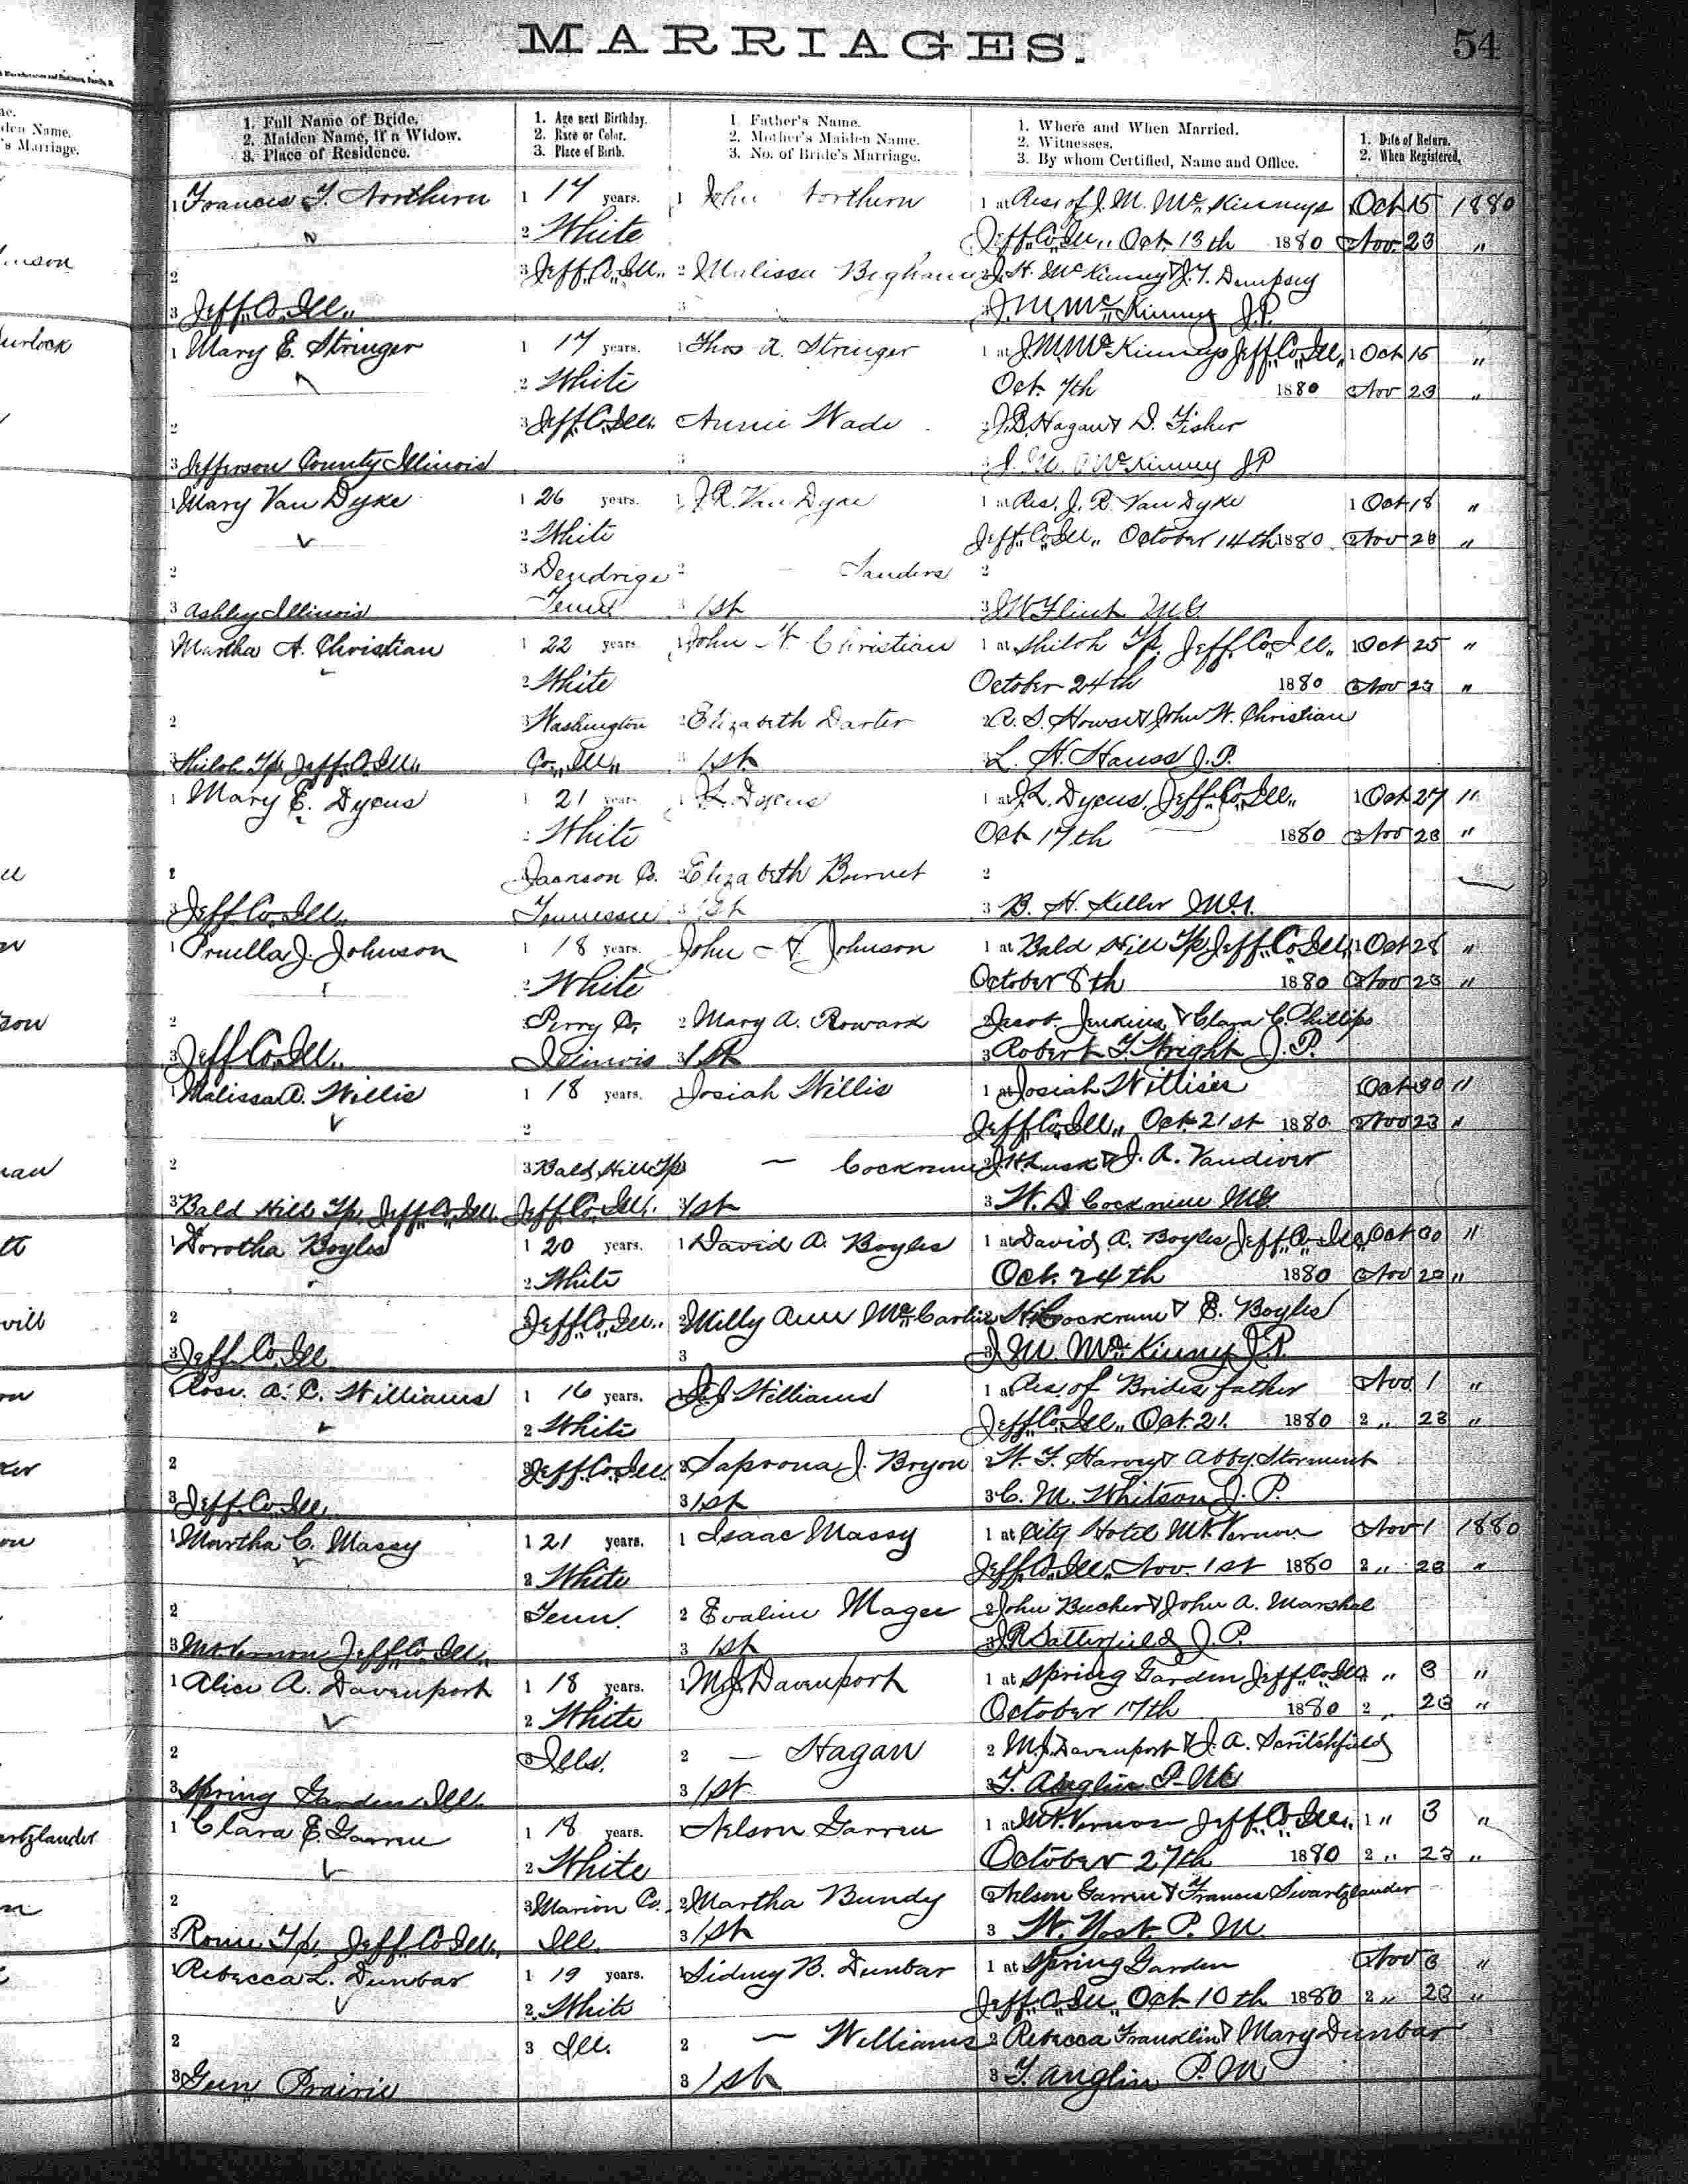 MARRIAGES.
54
1. Full Name of Bride.
2. Maiden Name, if a Widow.
3. Place of Residence.
1. Age next Birthday.
2. Race or Color.
3. Place of Birth.
1. Father's Name.
2. Mother's Maiden Name.
3. No. of Bride's Marriage.
1. Where and When Married.
2. Witnesses.
3. By whom Certified, Name and Office.
1. Date of Return.
2. When Registered.
den Name.
's Marriage.
1 Frances T. Northern 1 17 years. 1 John Northern 1 at Res. of J. M. McKinneys 1 Oct 15 1880
2 White Jeff. Co. Ill. Oct. 13th 1880 2 Nov. 23 "
2 3 Jeff. Co. Ill. 2 Malissa 2 J. H. McKinney & J. T. Dempsey
3 Jeff. Co. Ill. 3 3 J. M. McKinney J.P.
1 Mary E. Stringer 1 17 years. 1 Thos A. Stringer 1 at J. M. McKinneys Jeff. Co. Ill. 1 Oct 15 "
2 White Oct. 7th 1880 2 Nov 23 "
2 3 Jeff. Co. Ill. Annie Wade 2 J. B. Hagan & D. Fisher
3 Jefferson County Illinois 3 3 J. M. McKinney JP
1 Mary Van Dyke 1 26 years. 1 J. R. Van Dyke 1 at Res. J. R. Van Dyke 1 Oct 18 "
2 White Jeff. Co. Ill. October 14th 1880 2 Nov 23 "
2 3 Dendrige 2 — Sanders 2
3 Ashley Illinois Tenn 3 1st 3 J W Flint M.G.
Martha A. Christian 1 22 years 1 John W. Christian 1 at Shiloh Tp. Jeff. Co. Ill. 1 Oct 25 "
2 White October 24th 1880 2 Nov 23 "
2 3 Washington 2 Elizabeth Darter 2 R. S. Howse & John W. Christian
3 Shiloh Tp. Jeff. Co. Ill. Co. Ill. 3 1st 3 L. H. Hauss J.P.
1 Mary E. Dycus 1 21 years 1 J. L. Dycus 1 at J. L. Dycus, Jeff. Co. Ill. 1 Oct 27 "
2 White Oct 17th 1880 2 Nov 23 "
2 Jackson Co. 2 Elizabeth Burnet 2
3 Jeff. Co. Ill. Tennessee 3 1st 3 B. H. Keller M.G.
1 Pruella J. Johnson 1 18 years. John A. Johnson 1 at Bald Hill Tp. Jeff. Co. Ill. 1 Oct 28 "
2 White October 8th 1880 2 Nov 23 "
2 3 Perry Co. 2 Mary A. Roward 2 Jacob Jenkins & Clara C. Phillips
3 Jeff. Co. Ill. Illinois 3 1st 3 Robert T. Wright J.P.
1 Malissa A. Willis 1 18 years. 1 Josiah Willis 1 at Josiah Willises Oct 30 "
2 Jeff. Co. Ill. Oct. 21st 1880 2 Nov 23 "
2 3 Bald Hill Tp — Cockrum 2 J. H. Lusk & J. A. Vandiver
3 Bald Hill Tp. Jeff. Co. Ill. Jeff. Co. Ill. 3 1st 3 W. D. Cockrum MG
1 Dorotha Boyles 1 20 years. 1 David A. Boyles 1 at David A. Boyles Jeff. Co. Ill. Oct 30 "
2 White Oct. 24th 1880 2 Nov 23 "
2 3 Jeff. Co. Ill. 2 Milly Ann 2 Cockrum & E. Boyles
3 Jeff. Co. Ill. 3 3 J. M. McKinney J.P.
Rose. A. C. Williams 1 16 years. 1 Williams 1 at Res. of Brides father Nov 1 "
2 White Jeff. Co. Ill. Oct. 21. 1880 2 " 23 "
2 3 Jeff. Co. Ill. 2 Saprona J. Bryon 2 W. F. Harvey & Abby Storment
3 Jeff. Co. Ill. 3 1st 3 C. M. Whitson J. P.
1 Martha C. Massy 1 21 years. 1 Isaac Massy 1 at City Hotel Mt. Vernon Nov 1 1880
2 White Jeff. Co. Ill. Nov. 1st 1880 2 " 23 "
2 Tenn. 2 Evaline Magee 2 John Bucher & John A. Marshal
3 Mt Vernon Jeff. Co. Ill. 3 1st 3 J R Satterfield J. P.
1 Alice A. Davenport 1 18 years. 1 M. J. Davenport 1 at Spring Garden Jeff. Co. Ill. " 3 "
2 White October 17th 1880 2 " 23 "
2 3 Ills. 2 — Hagan 2 M. J. Davenport & J. A. Scritchfield
3 Spring Garden Ill. 3 1st 3 T. Anglin P. M
1 Clara E. Garren 1 18 years. 1 Nelson Garren 1 at Mt. Vernon Jeff. Co. Ill. 1 " 3 "
2 White October 27th 1880 2 " 23 "
2 3 Marion Co. 2 Martha Bundy 2 Nelson Garren & Frances Swartzlander
3 Rome Tp. Jeff. Co. Ill. Ill. 3 1st 3 W. Yost P. M
1 Rebecca L. Dunbar 1 19 years. 1 Sidney B. Dunbar 1 at Spring Garden Nov 3 "
2 White Jeff. Co. Ill. Oct 10th 1880 2 " 23 "
2 3 Ill. 2 — Williams 2 Rebecca Franklin & Mary Dunbar
3 Gun Prairie 3 1st 3 T. Anglin P. M